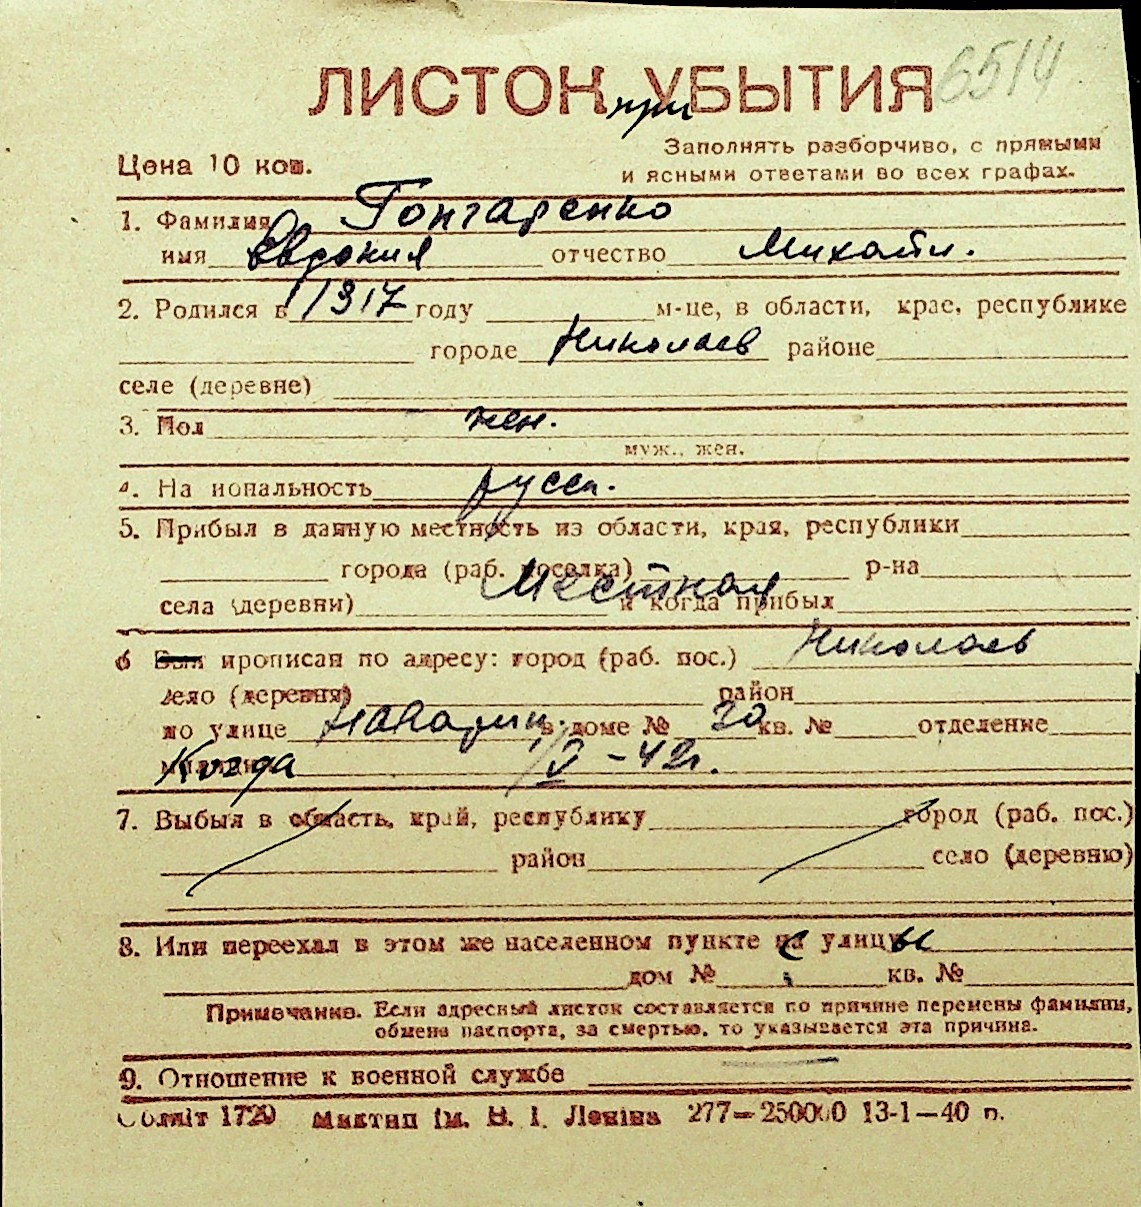 ЛИСТОК УБЫТИЯ 6514
при
Заполнять разборчиво, с прямыми
Цена 10 коп. и ясными ответами во всех графах.
1. Фамилия Гончаренко
имя Евдокия отчество Михайл.
2. Родился в 1917 году м-це, в области, крае, республике
городе Николаев районе
селе (деревне)
3. Пол жен.
муж., жен.
4. Национальность русск.
5. Прибыл в данную местность из области, края, республики
города (раб. поселка) р-на
Местная
села (деревни) и когда прибыл
6 Был прописан по адресу: город (раб. пос.) Николаев
село (деревня) район
по улице Наварин. в доме № 30 кв. № отделение
милиции Когда 1/V - 42г.
7. Выбыл в область, край, республику город (раб. пос.)
район село (деревню)
8. Или переехал в этом же населенном пункте с улицы
дом № кв. №
Примечание. Если адресный листок составляется по причине перемены фамилии,
обмена паспорта, за смертью, то указывается эта причина.
9. Отношение к военной службе —
Облліт 1720 Миктип ім. В. І. Леніна 277—250000 13-1—40 п.